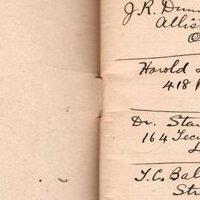 J.R. Dunn
Allist
O
Harold
418
Dr. Star
164 Tecu
L
T.C. Bal
Str